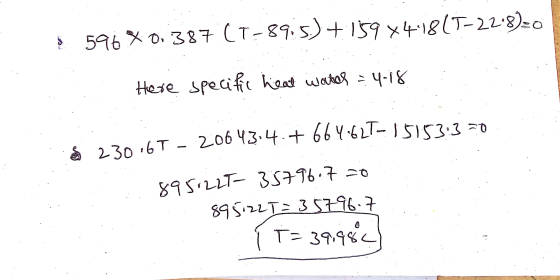 596 × 0.387 (T-89.5) + 159 × 4.18 (T-22.8)=0
Here specific heat water = 4.18
230.6T - 20643.4 + 664.62T - 15153.3 = 0
895.22T - 35796.7 = 0
895.22T = 35796.7
T = 39.98°C